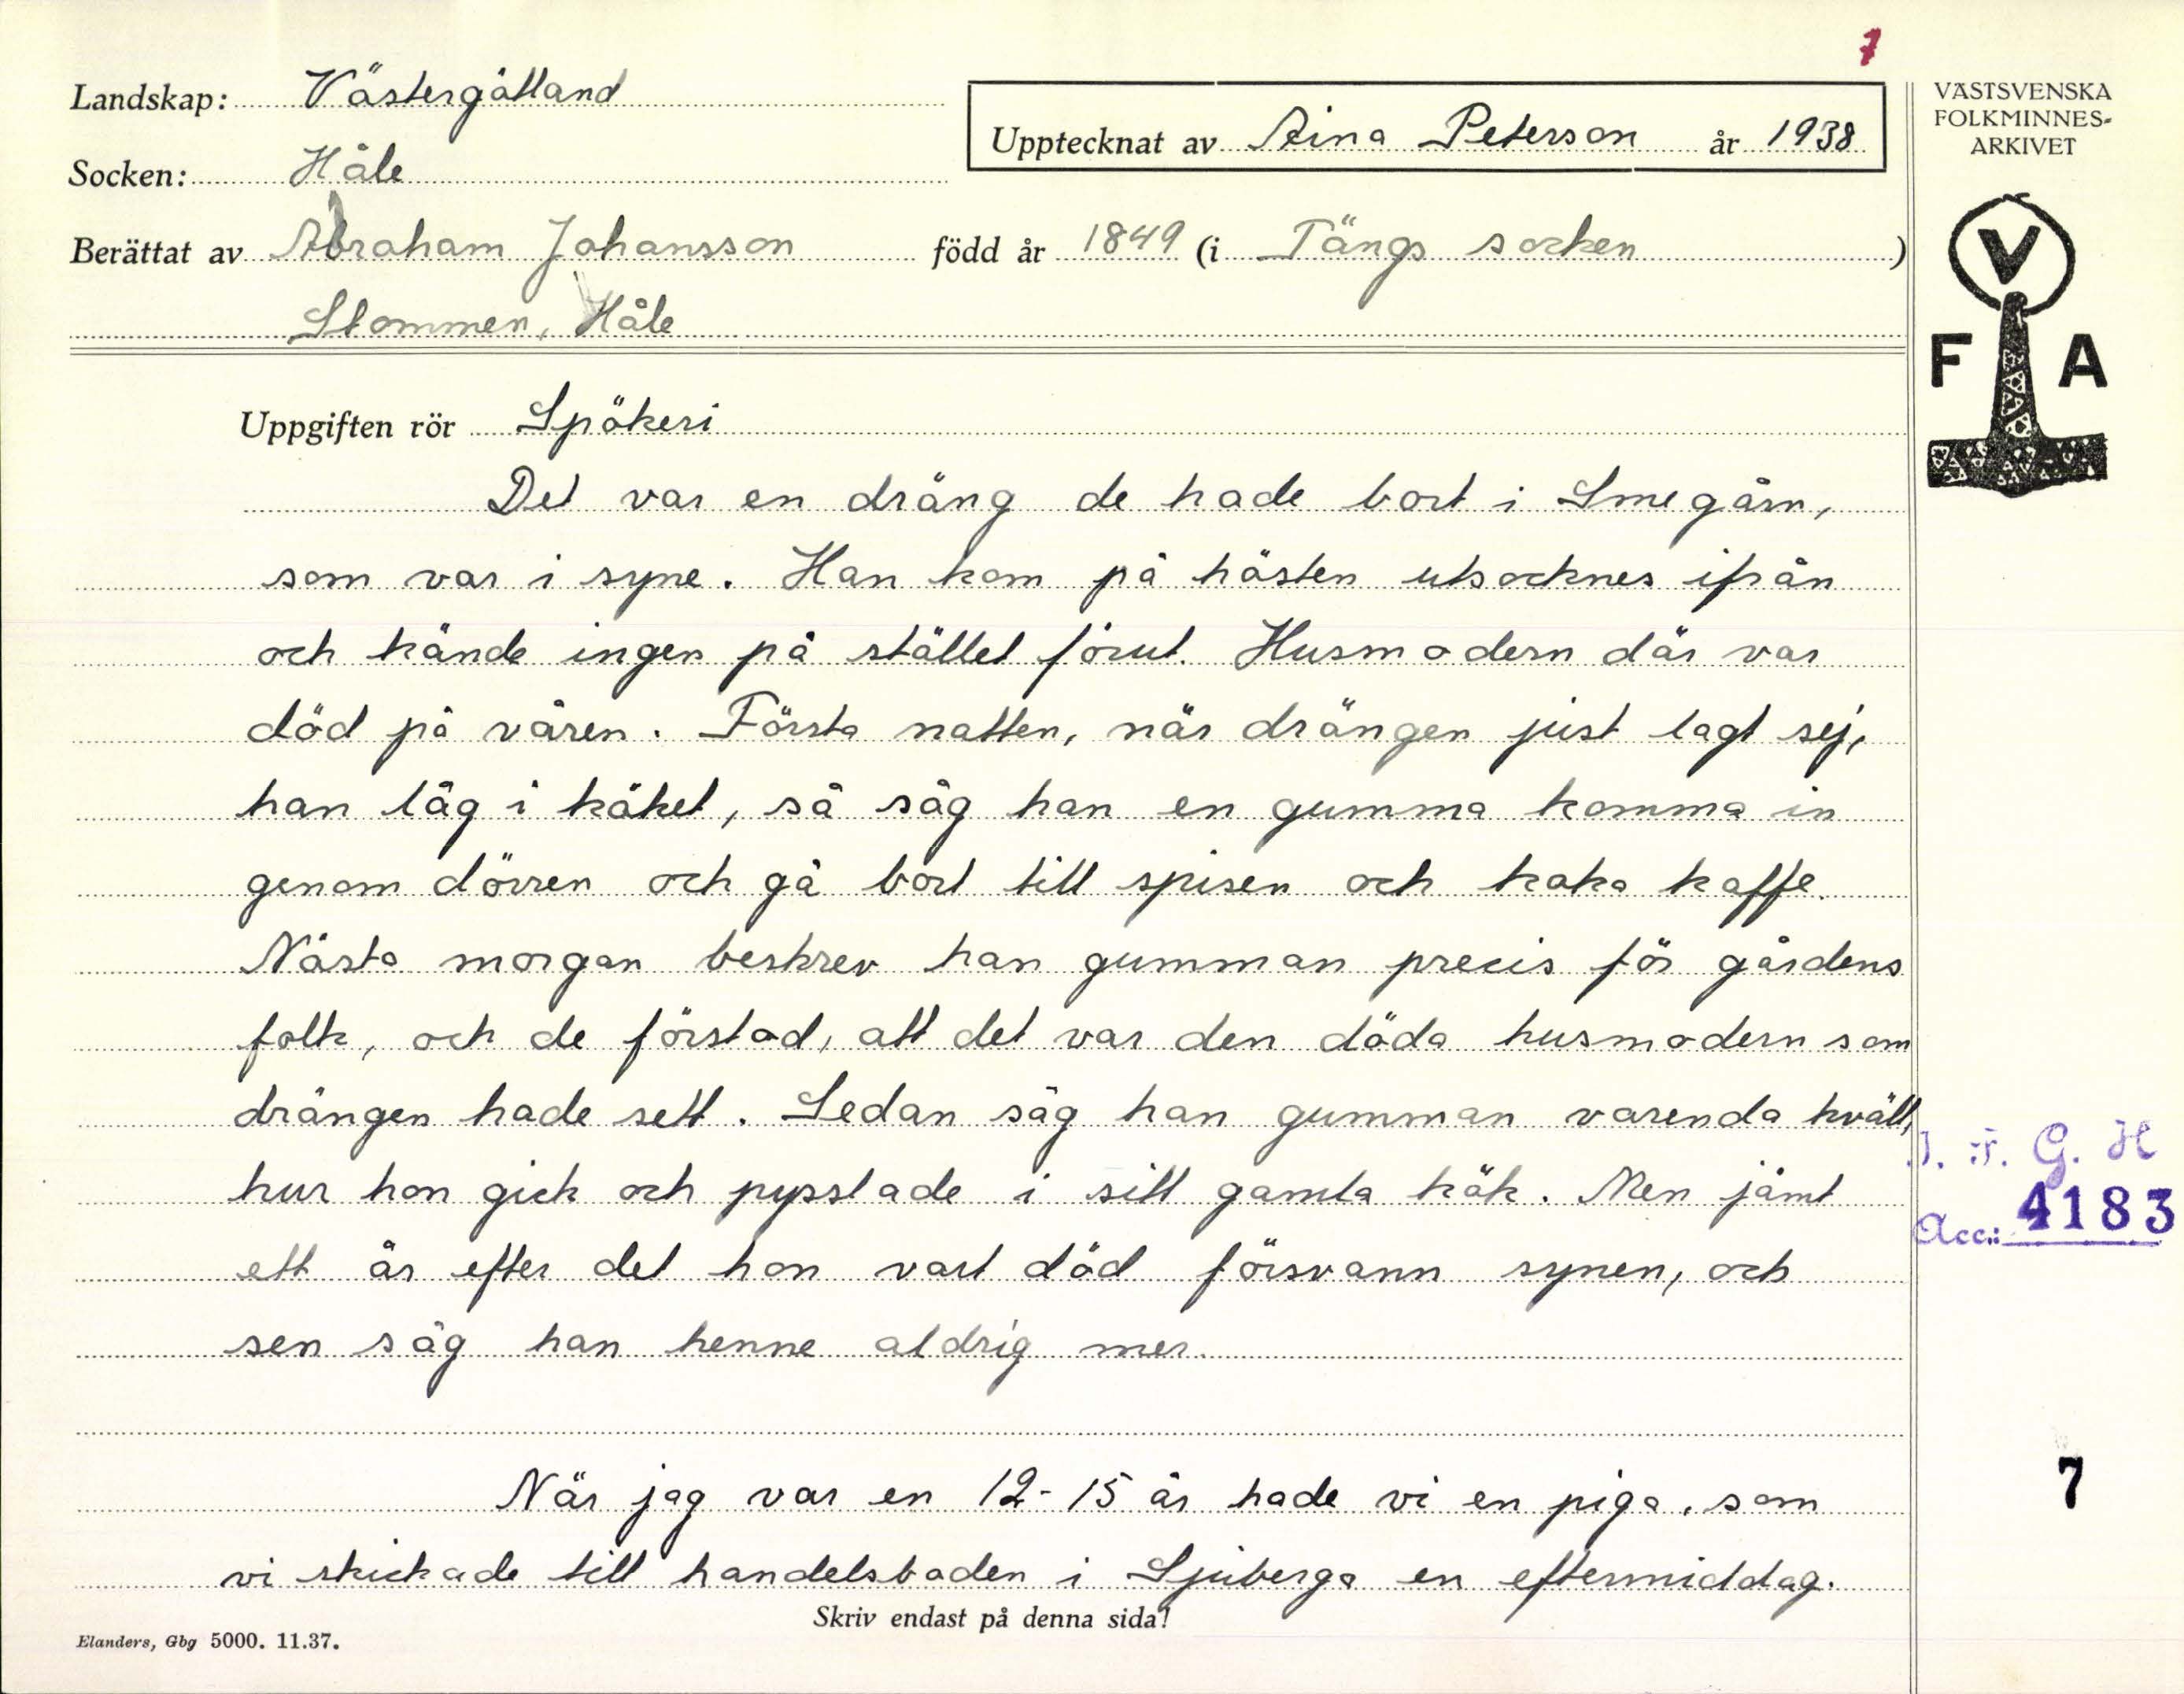 7
Landskap: Västergötland
Upptecknat av Aina Peterson år 1938
VÄSTSVENSKA
FOLKMINNES-
ARKIVET
Socken: Håle
Berättat av Abraham Johansson född år 1849 (i Tängs socken)
Stommen, Håle
V
F A
Uppgiften rör Spökeri
Det var en dräng de hade bort i Smegårn,
som var i syne. Han kom på hösten utsocknes ifrån
och kände ingen på stället förut. Husmodern där var
död på våren. Första natten, när drängen just lagt sej,
han låg i köket, så såg han en gumma komma in
genom dörren och gå bort till spisen och koka kaffe.
Nästa morgon beskrev han gumman precis för gårdens
folk, och de förstod, att det var den döda husmodern som
drängen hade sett. Sedan såg han gumman varenda kväll,
hur hon gick och pysslade i sitt gamla kök. Men jämt
ett år efter det hon vart död försvann synen, och
sen såg han henne aldrig mer.
I. F. G. H
Acc.: 4183
När jag var en 12-15 år hade vi en piga, som
vi skickade till handelsboden i Sjuberga en eftermiddag.
7
Skriv endast på denna sida!
Elanders, Gbg 5000. 11.37.